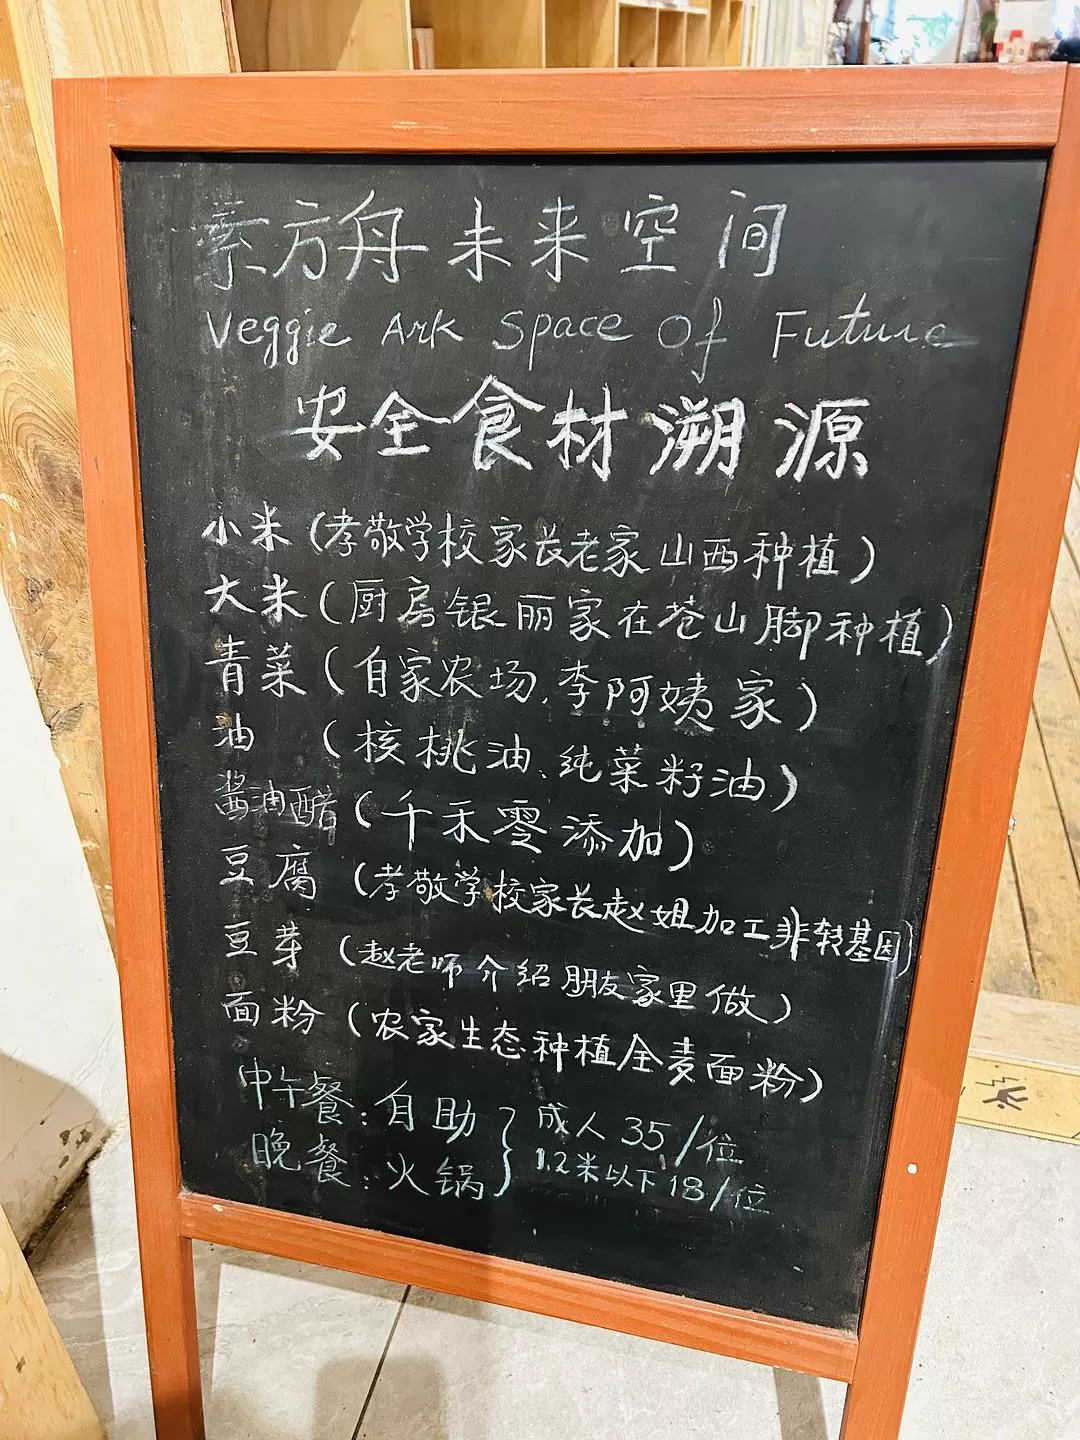 素方舟未来空间
Veggie Ark Space Of Future
安全食材溯源
小米(孝敬学校家长老家山西种植)
大米(厨房银丽家在苍山脚种植)
青菜(自家农场,李阿姨家)
油(核桃油、纯菜籽油)
酱油醋(千禾零添加)
豆腐(孝敬学校家长赵姐加工非转基因)
豆芽(赵老师介绍朋友家里做)
面粉(农家生态种植全麦面粉)
中午餐:自助}成人35/位
晚餐:火锅}1.2米以下18/位